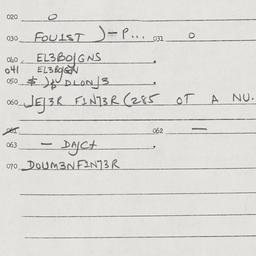 020 O
030 FOUIST )=P... 031 O
040 EL3BOJGNS .
041 EL3BOJGN
050 DLONJ3 .
060 JEJ3R FINT3R (285 OT A NU.
061 062 —
063 — DAJCT .
070 DOUM3NFINT3R